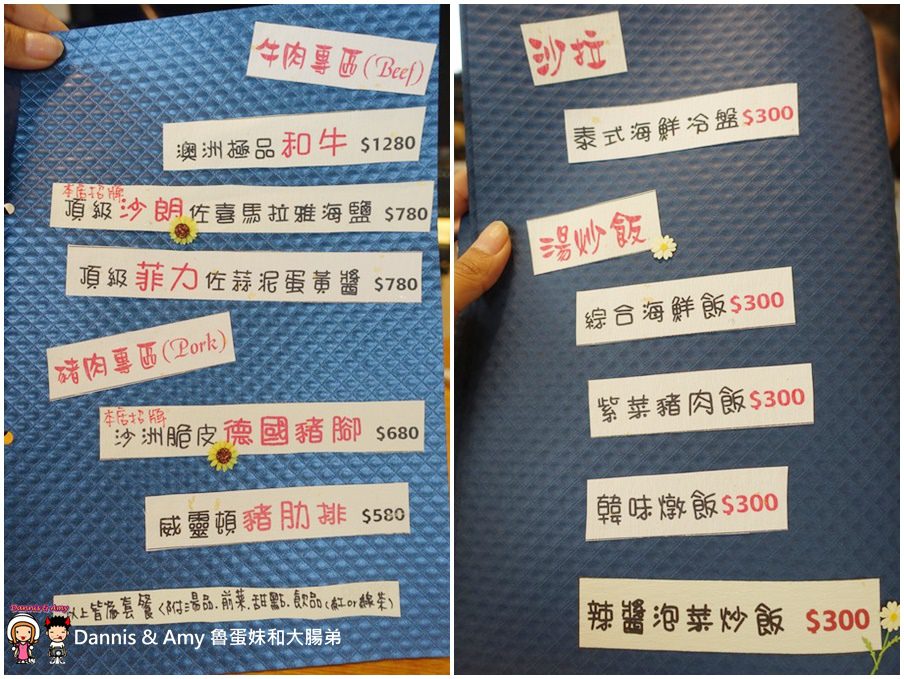 牛肉專區(Beef)
澳洲極品和牛 $1280
本店招牌
頂級沙朗佐喜馬拉雅海鹽 $780
頂級菲力佐蒜泥蛋黃醬 $780
豬肉專區(Pork)
本店招牌
沙洲脆皮德國豬腳 $680
威靈頓豬肋排 $580
以上皆為套餐(附湯品.前菜.甜點.飲品(紅or綠茶)
Dannis & Amy
Dannis & Amy 魯蛋妹和大腸弟
沙拉
泰式海鮮冷盤$300
湯炒飯
綜合海鮮飯$300
紫菜豬肉飯$300
韓味燉飯$300
辣醬泡菜炒飯 $300